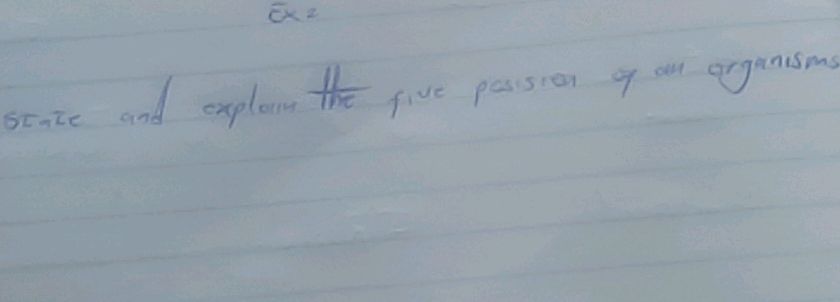 Ex 2
State and explain the five posision of an organisms